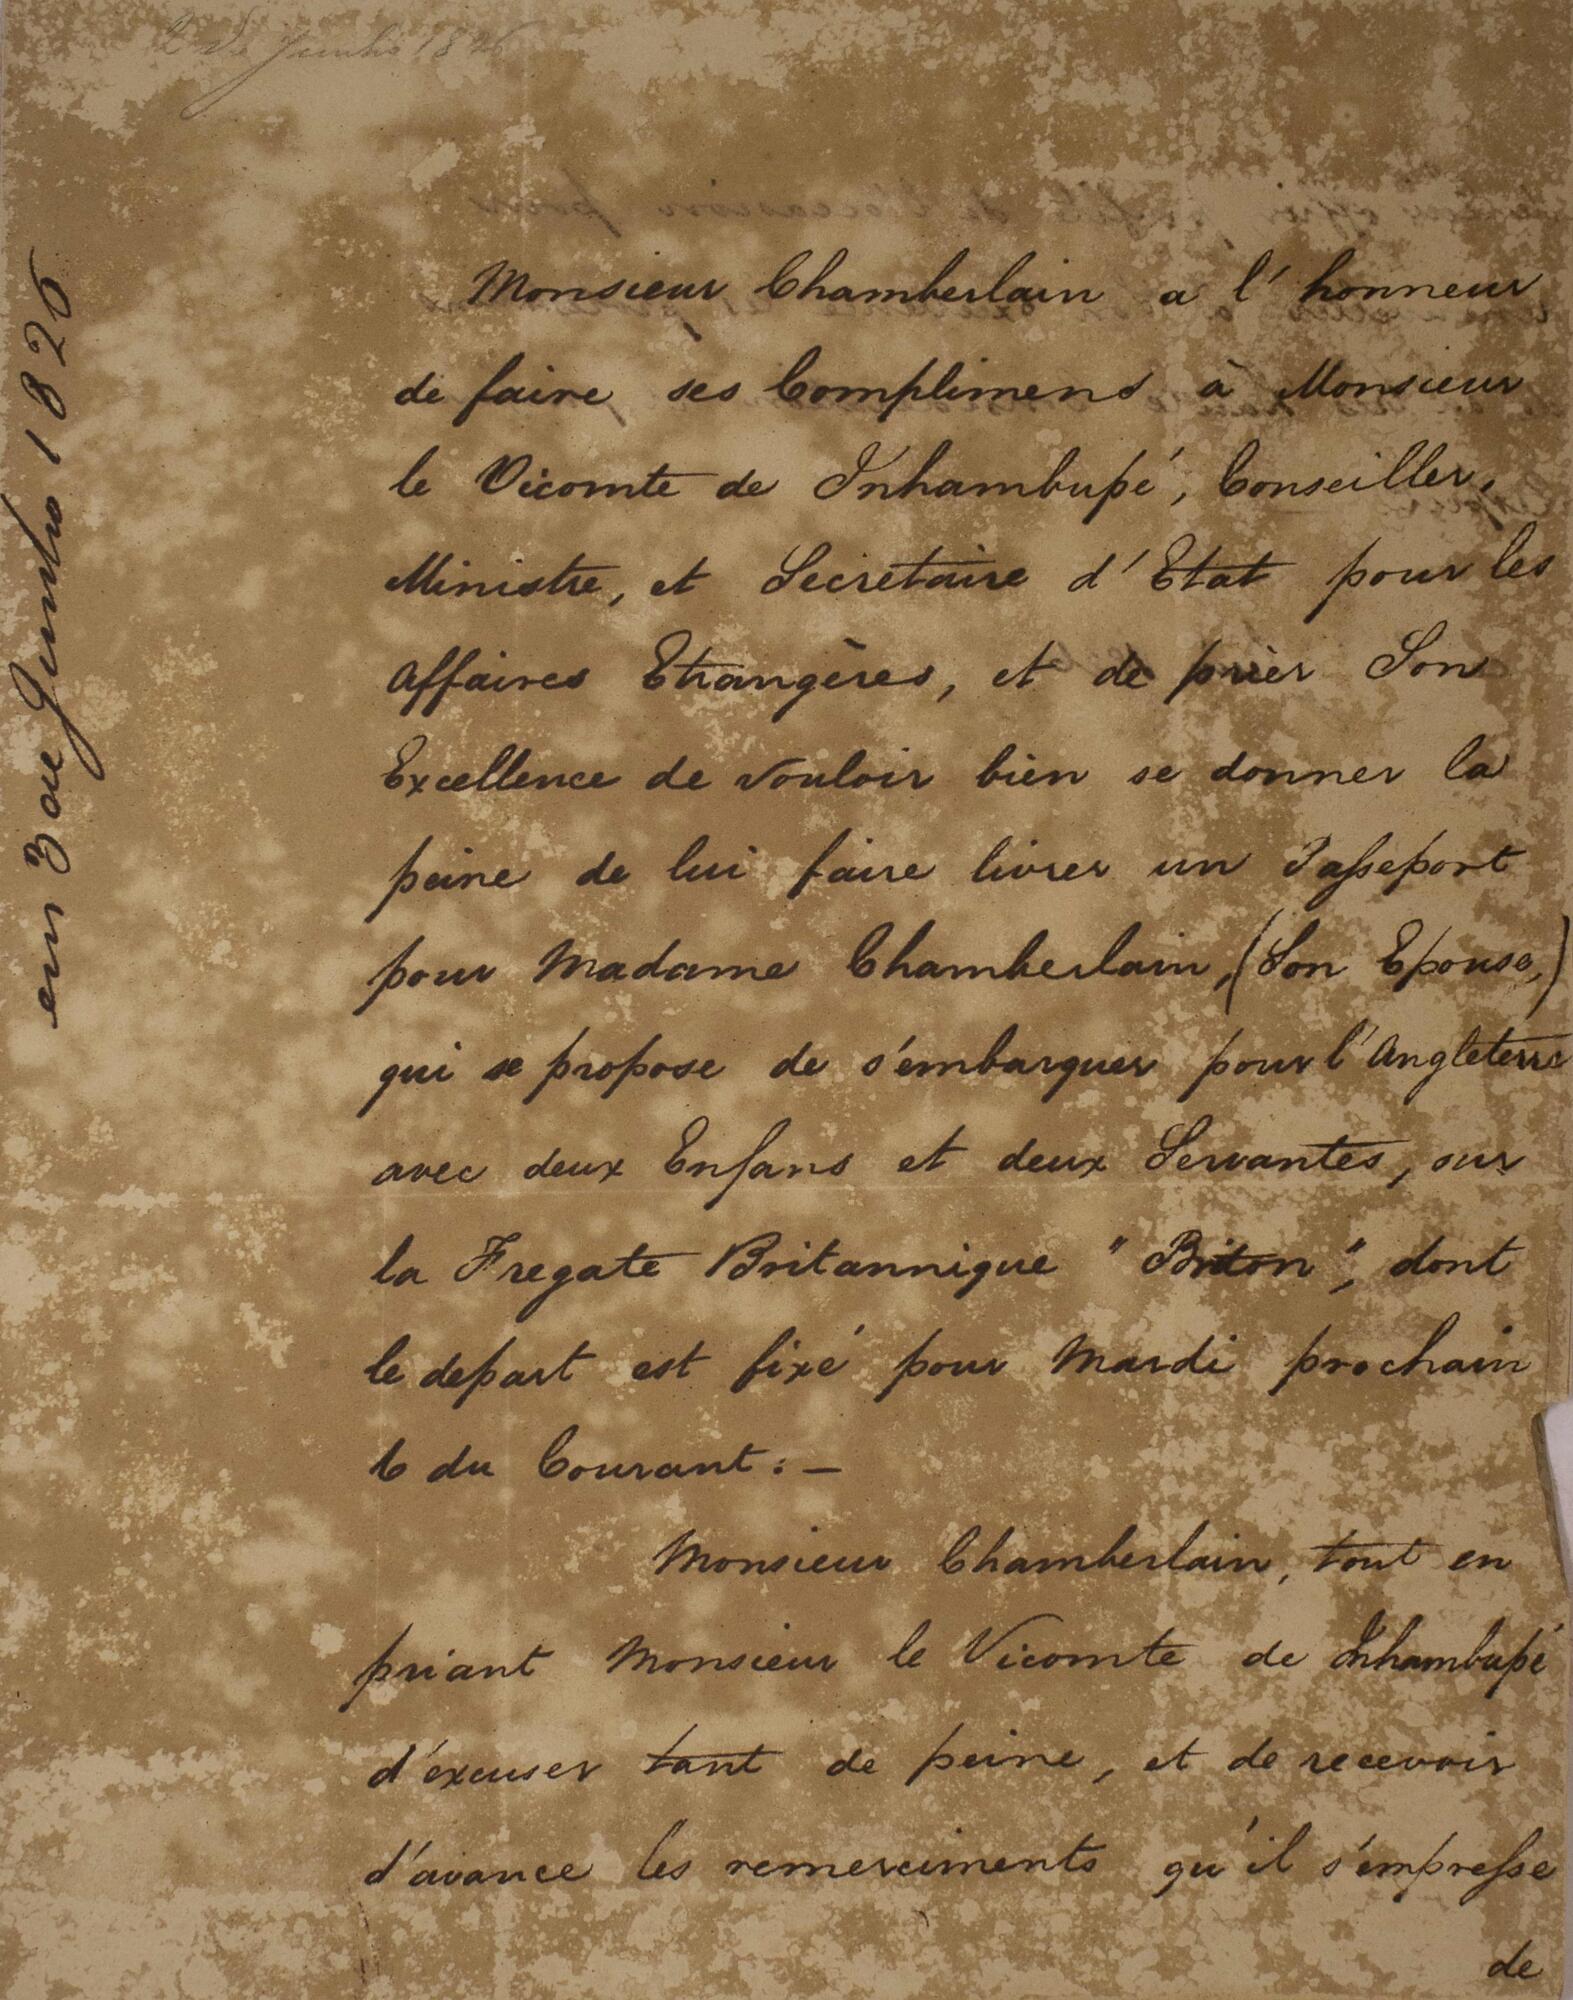 2 de Junho 1826
em 3 de Junho 1826
Monsieur Chamberlain a l'honneur
de faire ses Complimens à Monsieur
le Vicomte de Inhambupé, Conseiller,
Ministre, et Secretaire d'Etat pour les
Affaires Etrangères, et de prièr Son
Excellence de vouloir bien se donner la
peine de lui faire livrer un Passeport
pour Madame Chamberlain, (Son Epouse,)
qui se propose de s'embarquer pour l'Angleterre
avec deux Enfans et deux Servantes, sur
la Fregate Britannique "Briton", dont
le depart est fixé pour Mardi prochain
6 du Courant:—
Monsieur Chamberlain, tout en
priant Monsieur le Vicomte de Inhambupé
d'éxcuser tant de peine, et de recevoir
d'avance les remerciments qu'il s'empresse
de